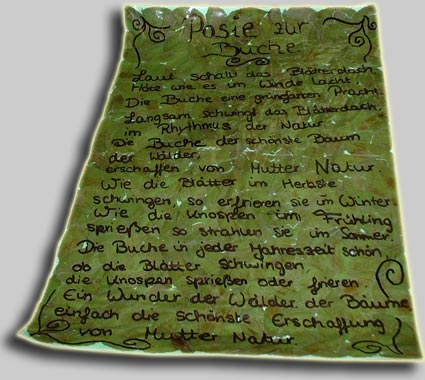 Posie zur
Buche
Laut schallt das Blätterdach,
Höre wie es im Winde lacht.
Die Buche eine grünfarben Pracht.
Langsam schwingt das Blätterdach,
im Rhythmus der Natur.
Die Buche der schönste Baum
der Wälder,
erschaffen von Mutter Natur.
Wie die Blätter im Herbste
schwingen, so erfrieren sie im Winter.
Wie die Knospen im Frühling
sprießen so strahlen sie im Sommer.
Die Buche in jeder Jahreszeit schön,
ob die Blätter schwingen,
die Knospen sprießen oder frieren.
Ein Wunder der Wälder, der Bäume,
einfach die schönste Erschaffung
von Mutter Natur.